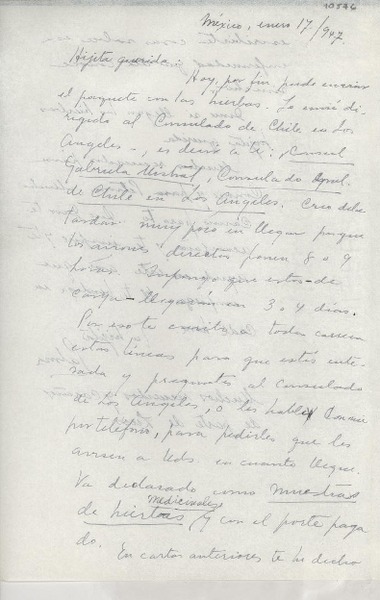 10576
México, enero 17/947.
Hijita querida:
Hoy, por fin, pude enviar
el paquete con las hierbas. Lo envié di-
rigido al Consulado de Chile en Los
Angeles -, es decir a ti, Cónsul
Gabriela Mistral, Consulado Gral.
de Chile en Los Angeles. Creo debe
tardar muy poco en llegar porque
los aviones directos ponen 8 o 9
horas. Supongo que estos - de
carga - llegarán en 3 o 4 días.
Por eso te escribo a toda carrera
estas líneas para que estés ente-
rada y preguntes al Consulado
de Los Angeles, o les hable Connie
por teléfono, para pedirles que les
avisen a Uds. en cuanto llegue.
Va declarado como muestras
de hierbas medicinales y con el porte paga
do.
En cartas anteriores te he dicho